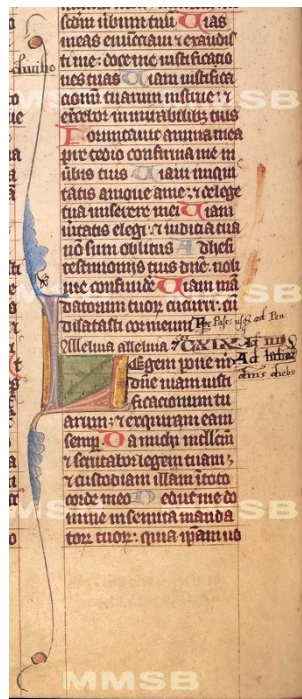 scdm ubium tuu Uias
meas enunciaui ⁊ exaudis
ti me: doce me iustificatio
nes tuas Uiam iustifica
cionu tuarum instrue: ⁊
excelor in mirabilibz tuis
Dormitauit anima mea
pre tedio confirma me in
ubis tuis Uiam iniqui
tatis amoue a me: ⁊ de lege
tua miserere mei Uiam
ueritatis elegi: ⁊ iudicia tua
no sum oblitus Adhesi
testimoniis tuis dne: noli
me confunde Uiam ma
datorum tuoꝝ cucurri: cu
dilatasti cor meum
Alleluia alleluia
Legem pone m
dne uiam iusti
ficacionum tu
arum: ⁊ exquiram eam
semp Da michi intellcm
⁊ scrutabor legem tuam:
⁊ custodiam illam i toto
corde meo Deduc me do
mine in semita manda
toꝝ tuoꝝ: quia ipam uo